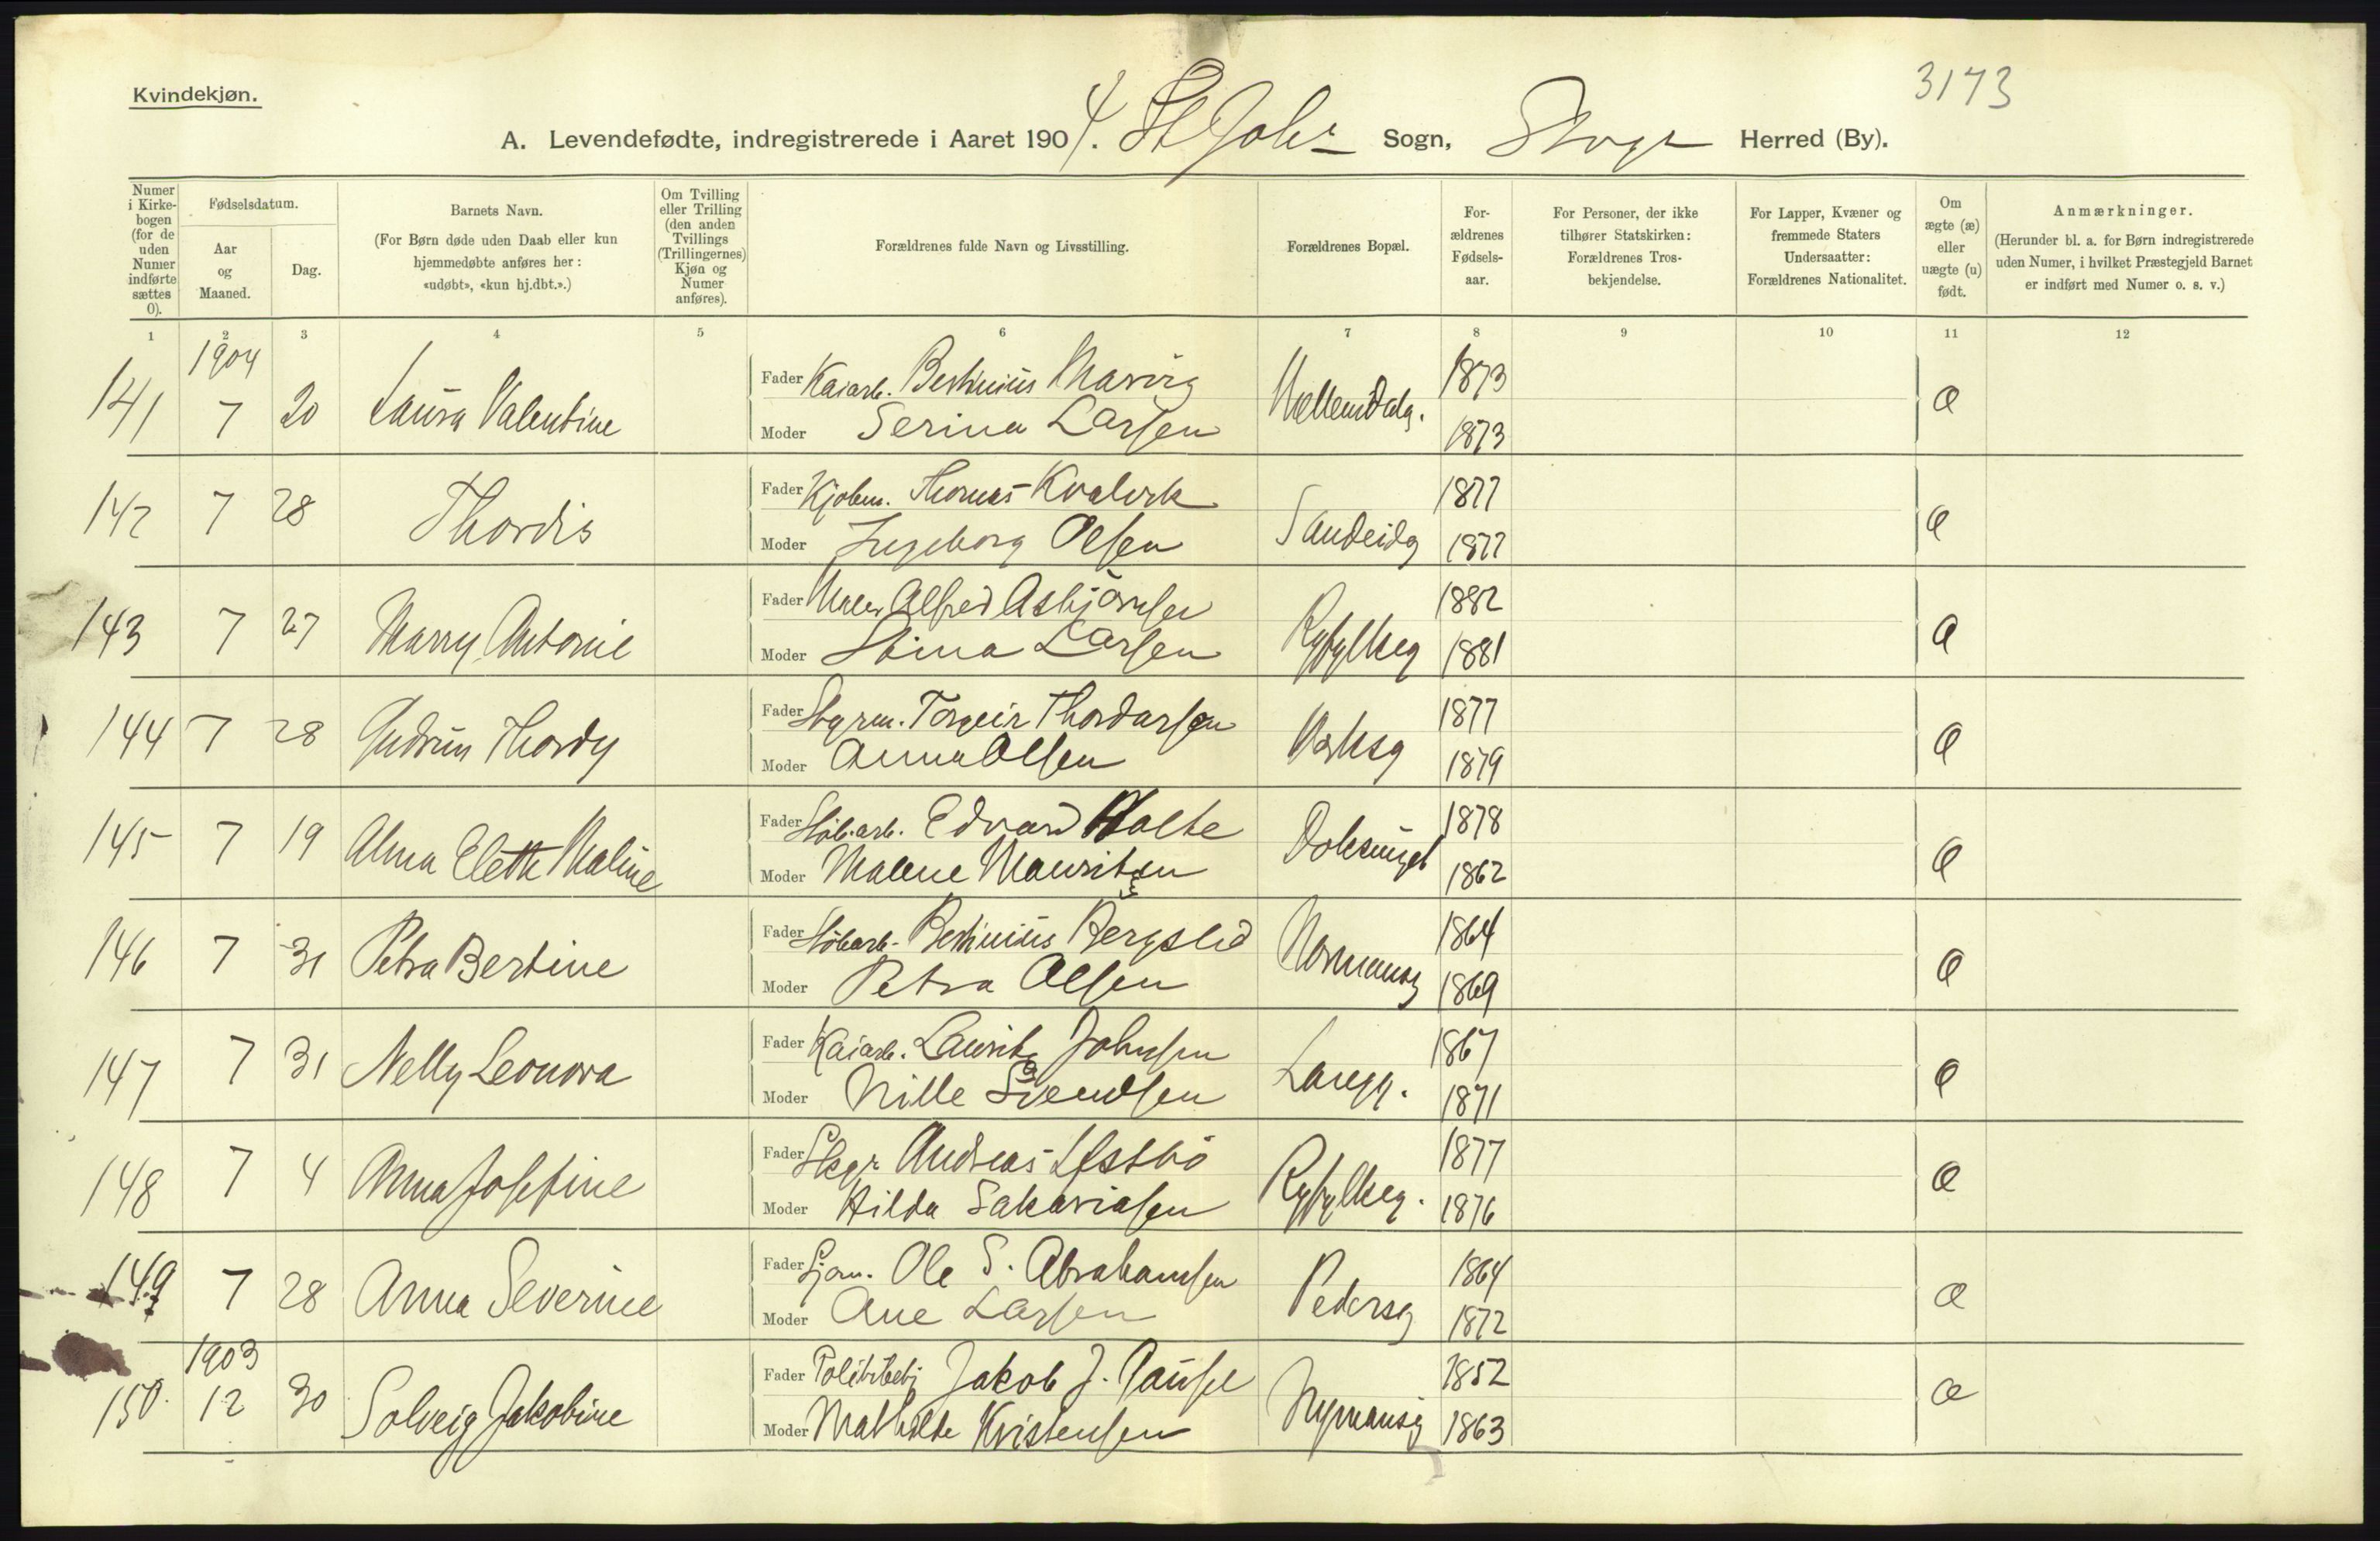 3173
Kvindekjøn.
A. Levendefødte, indregistrerede i Aaret 1904. St Joh Sogn, Stvgr Herred (By).
Numer i Kirke-bogen (for de uden Numer indførte sættes 0).
Fødselsdatum.
Aar og Maaned.
Dag.
Barnets Navn.
(For Børn døde uden Daab eller kun hjemmedøbte anføres her: «udøbt», «kun hj.dbt.».)
Om Tvilling eller Trilling (den anden Tvillings (Trillingernes) Kjøn og Numer anføres).
Forældrenes fulde Navn og Livsstilling.
Forældrenes Bopæl.
For-ældrenes Fødsels-aar.
For Personer, der ikke tilhører Statskirken: Forældrenes Tros-bekjendelse.
For Lapper, Kvæner og fremmede Staters Undersaatter: Forældrenes Nationalitet.
Om ægte (æ) eller uægte (u) født.
Anmærkninger.
(Herunder bl. a. for Børn indregistrerede uden Numer, i hvilket Præstegjeld Barnet er indført med Numer o. s. v.)
1 2 3 4 5 6 7 8 9 10 11 12
1904
141 7 20 Laura Valentine Fader Kaiarb. Bertinius 1873 æ
Moder Serina Larsen 1873
142 7 28 Thordis Fader Kjøbm. Thomas Kvalvik Sandeidg 1877 æ
Moder Ingeborg Olsen 1877
143 7 27 Marry Antonie Fader Maler Alfred Asbjörnsen Ryfylkeg 1882 æ
Moder Stina Larsen 1881
144 7 28 Gudrun Thordy Fader Styrm. Torgeir Thordarsen Vaksg 1877 æ
Moder Anna Olsen 1879
145 7 19 Alma Elette Maline Fader Støb.arb. Edvard Holte 1878 æ
Moder Malene Mauritzen 1862
146 7 31 Petra Bertine Fader Støbarb. Bertinius Bergslid Normansg 1864 æ
Moder Petra Olsen 1869
147 7 31 Nelly Leonora Fader Kaiarb. Lauritz Johnsen Langg. 1867 æ
Moder Nille Svendsen 1871
148 7 4 Anna Josefine Fader Andreas Ryfylkeg. 1877 æ
Moder Hilda Sakariasen 1876
149 7 28 Anna Severine Fader Sjøm. Ole S. Abrahamsen Pedersg 1864 æ
Moder Ane Larsen 1872
1903
150. 12 30 Solveig Jakobine Fader Politibetj Jakob J. Gausel Nymansg 1852 æ
Moder Mathilde Kristensen 1863